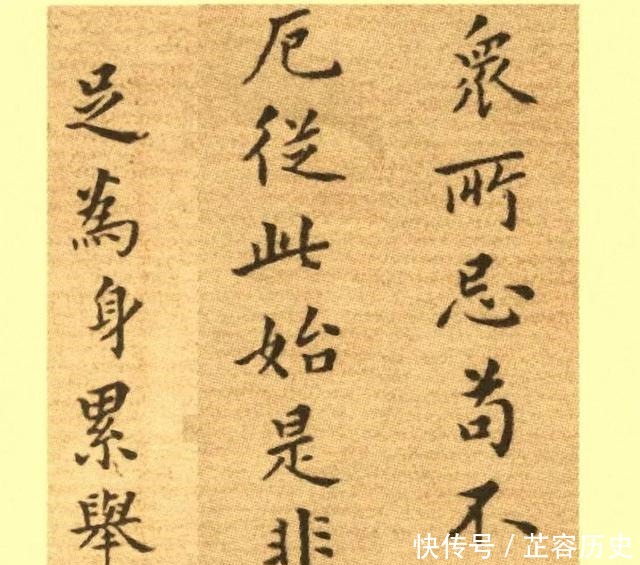 眾所忌苟不
厄從此始是非
足為身累舉
快传号 / 芷容历史